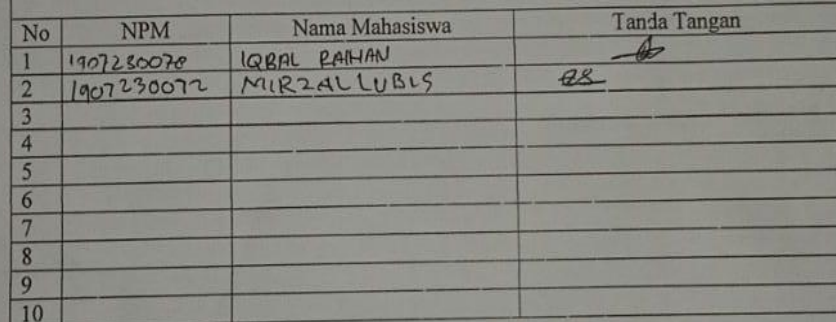 No NPM Nama Mahasiswa Tanda Tangan
1 1907230078 IQBAL RAIHAN
2 1907230072 MIRZAL LUBIS
3
4
5
6
7
8
9
10